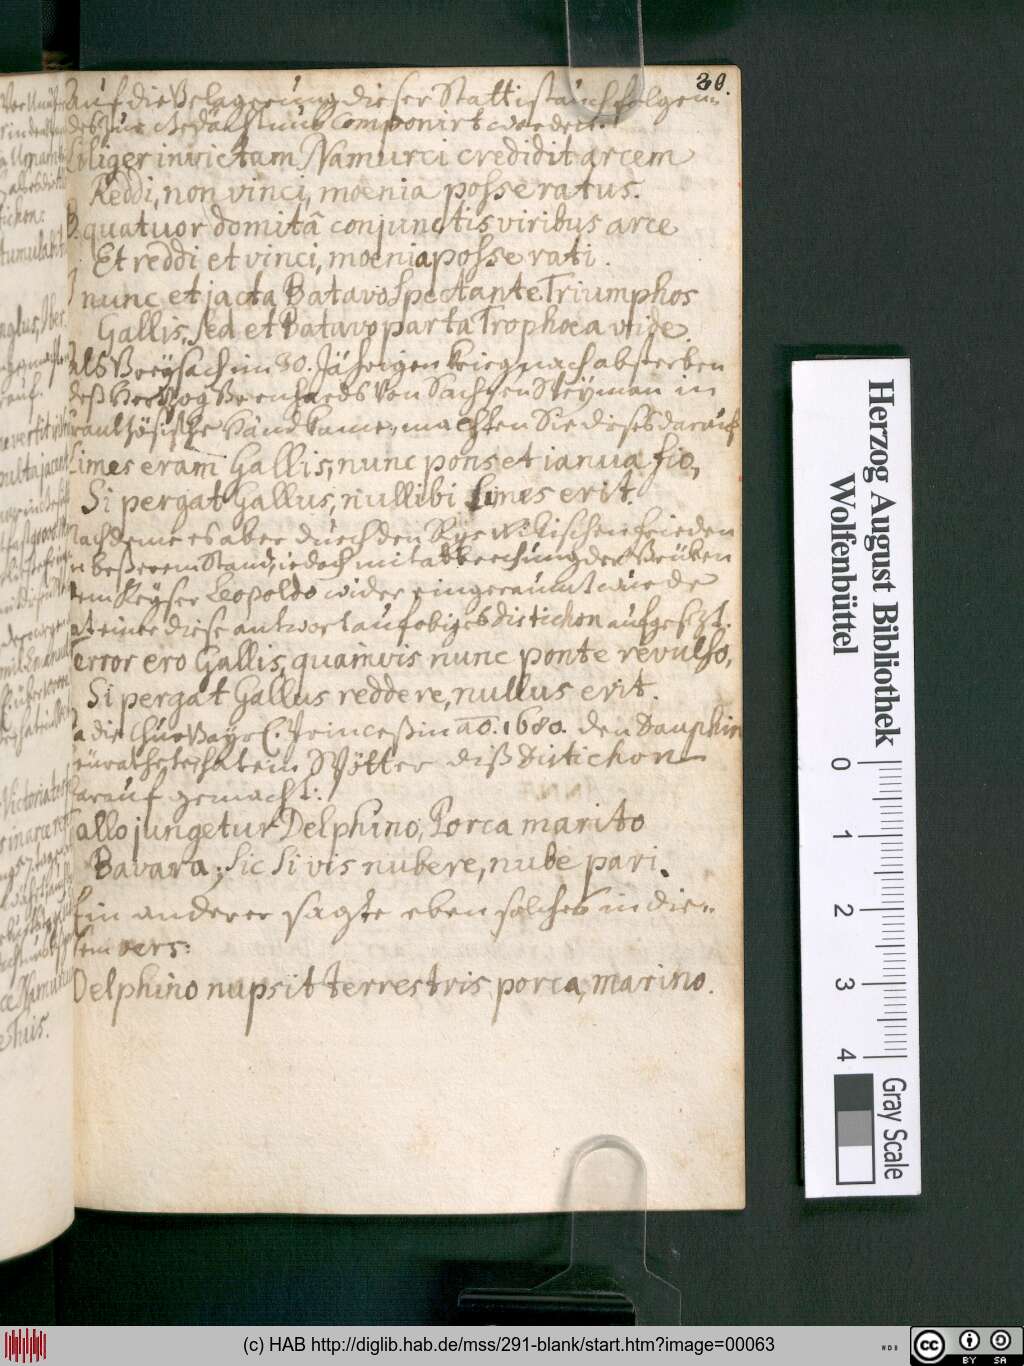 30.
Auf die Belagerung dieser Statt ist auch folgen-
des zur Gedächtnuß Componirt worden.
Liliger invictam Namurci credidit arcem
Reddi, non vinci, moenia posse ratus.
quatuor domitâ conjunctis viribus arce
Et reddi et vinci, moenia posse rati.
I nunc et jacta Batavo Spectante Triumphos
Gallis, sed et Batavo parta Trophoea vide.
Als Breysach im 30. Jährigen krieg nach absterben
deß Hertzog Bernhards von Sachsen Weymar in
frantzösische Händ kame, machten Sie dieses darauf
Limes eram Gallis, nunc pons et ianua fio,
Si pergat Gallus, nullibi Limes erit.
Nachdeme es aber durch den Ryswikischen frieden
in beßerem Stand, iedoch mit abbrechung der Brüken
dem Keyser Leopoldo wider eingeraumt wurde
hat einer diese antwort auf obiges distichon aufgesezt.
Terror ero Gallis, quamvis nunc ponte revulso,
Si pergat Gallus reddere, nullus erit.
Da die Chur Bayr. Princeßin ao. 1680. den Dauphin
heürathete, hat ein Spötter diß Distichon
darauf gemacht:
Gallo jungetur Delphino, Porca marito
Bavara; sic si vis nubere, nube pari.
Ein anderer sagte eben solches in die-
sem vers:
Delphino nupsit terrestris porca, marino.
Herzog August Bibliothek
Wolfenbüttel
0 1 2 3 4
Gray Scale
(c) HAB http://diglib.hab.de/mss/291-blank/start.htm?image=00063
WDB
CC BY SA